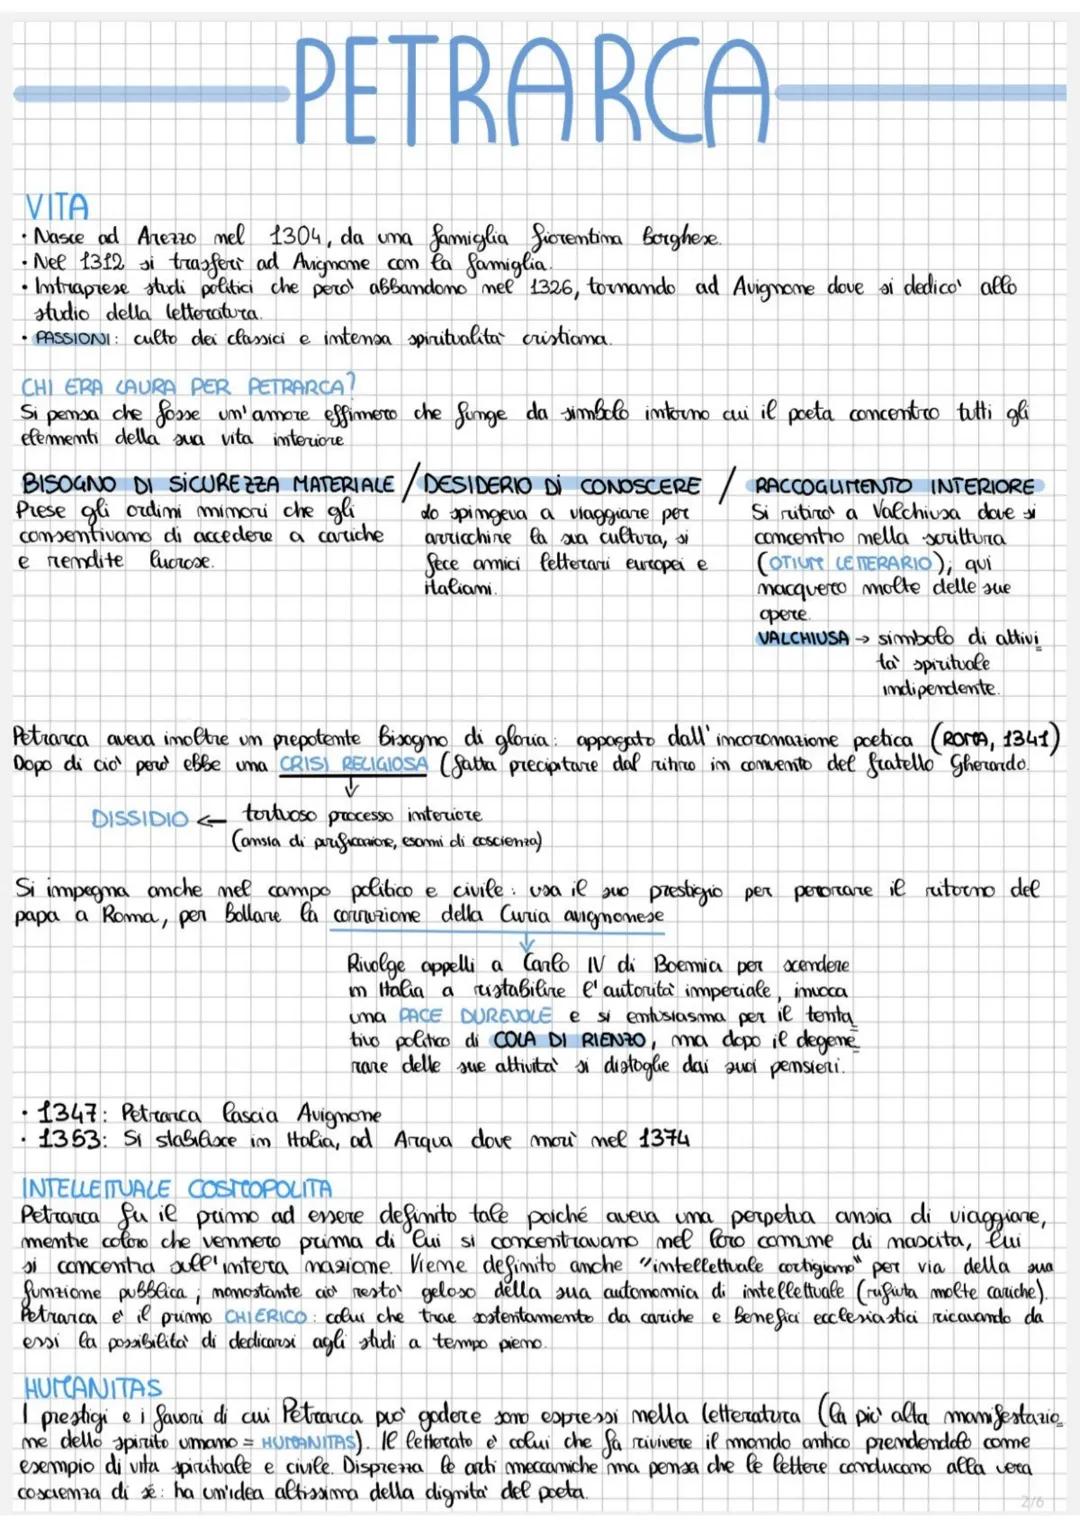 PETRARCA
VITA
· Nasce ad Arezzo nel 1304, da una famiglia fiorentina borghese.
· Nel 1312 si trasferì ad Avignone con la famiglia.
· Intraprese studi politici che pero' abbandono nel 1326, tornando ad Avignone dove si dedico' allo
studio della letteratura.
· PASSIONI: culto dei classici e intensa spiritualita' cristiana.
CHI ERA LAURA PER PETRARCA?
Si pensa che fosse un'amore effimero che funge da simbolo intorno cui il poeta concentro tutti gli
elementi della sua vita interiore
BISOGNO DI SICUREZZA MATERIALE / DESIDERIO DI CONOSCERE / RACCOGLIMENTO INTERIORE
Prese gli ordini minori che gli
consentivano di accedere a cariche
e rendite lucrose.
lo spingeva a viaggiare per
arricchire la sua cultura, si
fece amici letterari europei e
italiani.
Si ritiro' a Valchiusa dove si
concentro nella scrittura
(OTIUM LETTERARIO); qui
nacquero molte delle sue
opere.
VALCHIUSA → simbolo di attivi
ta' spirituale
indipendente.
Petrarca aveva inoltre un prepotente bisogno di gloria: appagato dall'incoronazione poetica (ROMA, 1341)
Dopo di cio' pero' ebbe una CRISI RELIGIOSA (fatta precipitare dal ritiro in convento del fratello Gherardo.
DISSIDIO ← tortuoso processo interiore
(ansia di purificazione, esami di coscienza)
Si impegna anche nel campo politico e civile: usa il suo prestigio per perorare il ritorno del
papa a Roma, per bollare la corruzione della Curia avignonese
Rivolge appelli a Carlo IV di Boemia per scendere
in Italia a ristabilire l'autorita' imperiale, invoca
una PACE DUREVOLE e si entusiasma per il tenta
tivo politico di COLA DI RIENZO, ma dopo il degene
rare delle sue attivita' si distoglie dai suoi pensieri.
· 1347: Petrarca lascia Avignone
· 1353: Si stabilisce in Italia, ad Arqua dove mori' nel 1374
INTELLETTUALE COSMOPOLITA
Petrarca fu il primo ad essere definito tale poiché aveva una perpetua ansia di viaggiare,
mentre coloro che vennero prima di lui si concentravano nel loro comune di nascita, lui
si concentra sull'intera nazione. Viene definito anche "intellettuale cortigiano" per via della sua
funzione pubblica; nonostante cio' resto' geloso della sua autonomia di intellettuale (rifiuta molte cariche).
Petrarca e' il primo CHIERICO: colui che trae sostentamento da cariche e benefici ecclesiastici ricavando da
essi la possibilita' di dedicarsi agli studi a tempo pieno.
HUMANITAS
I prestigi e i favori di cui Petrarca puo' godere sono espressi nella letteratura (la piu' alta manifestazio
ne dello spirito umano = HUMANITAS). Il letterato e' colui che fa rivivere il mondo antico prendendolo come
esempio di vita spirituale e civile. Disprezza le arti meccaniche ma pensa che le lettere conducano alla vera
coscienza di sé: ha un'idea altissima della dignita' del poeta.
2/6